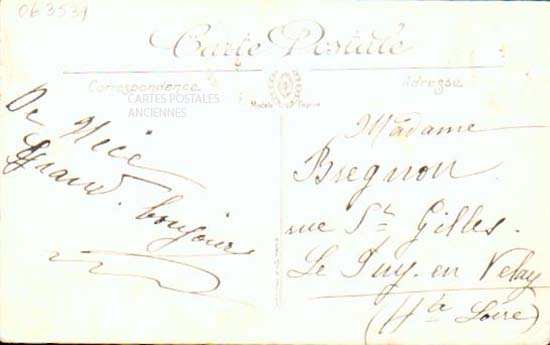 063539
Carte Postale
Correspondance
Adresse
CARTES POSTALES
ANCIENNES
De Nice
Grand bonjour
Madame
Bregnon
rue St Gilles.
Le Puy en Velay
(Hte Loire)